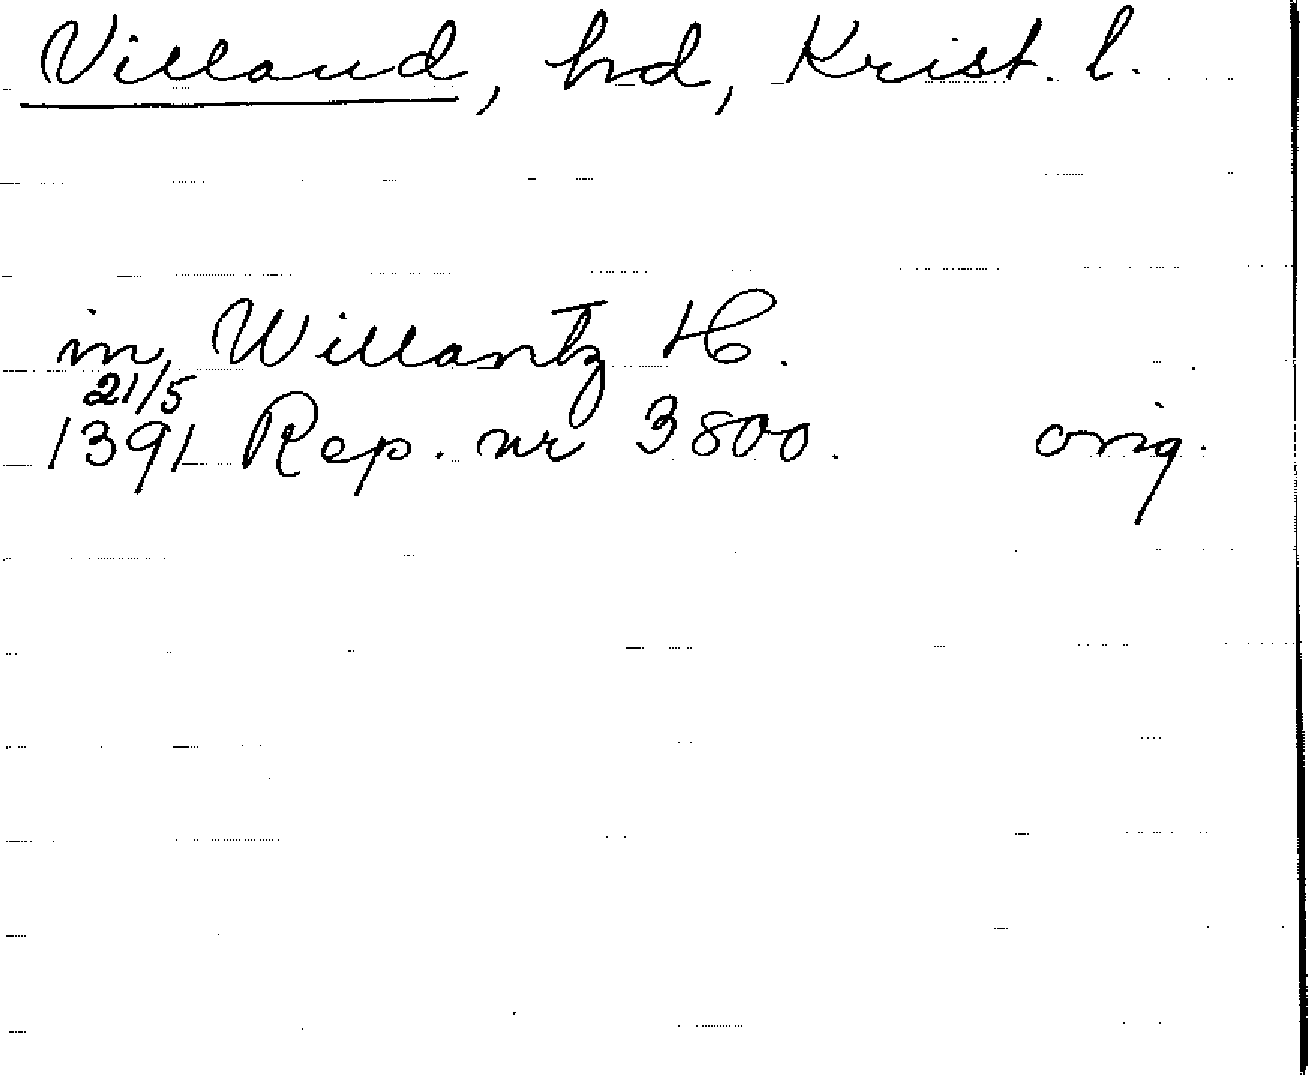 Villand, hd, Krist. l.
in Willantz H.
21/5
1391 Rep. nr 3800. orig.